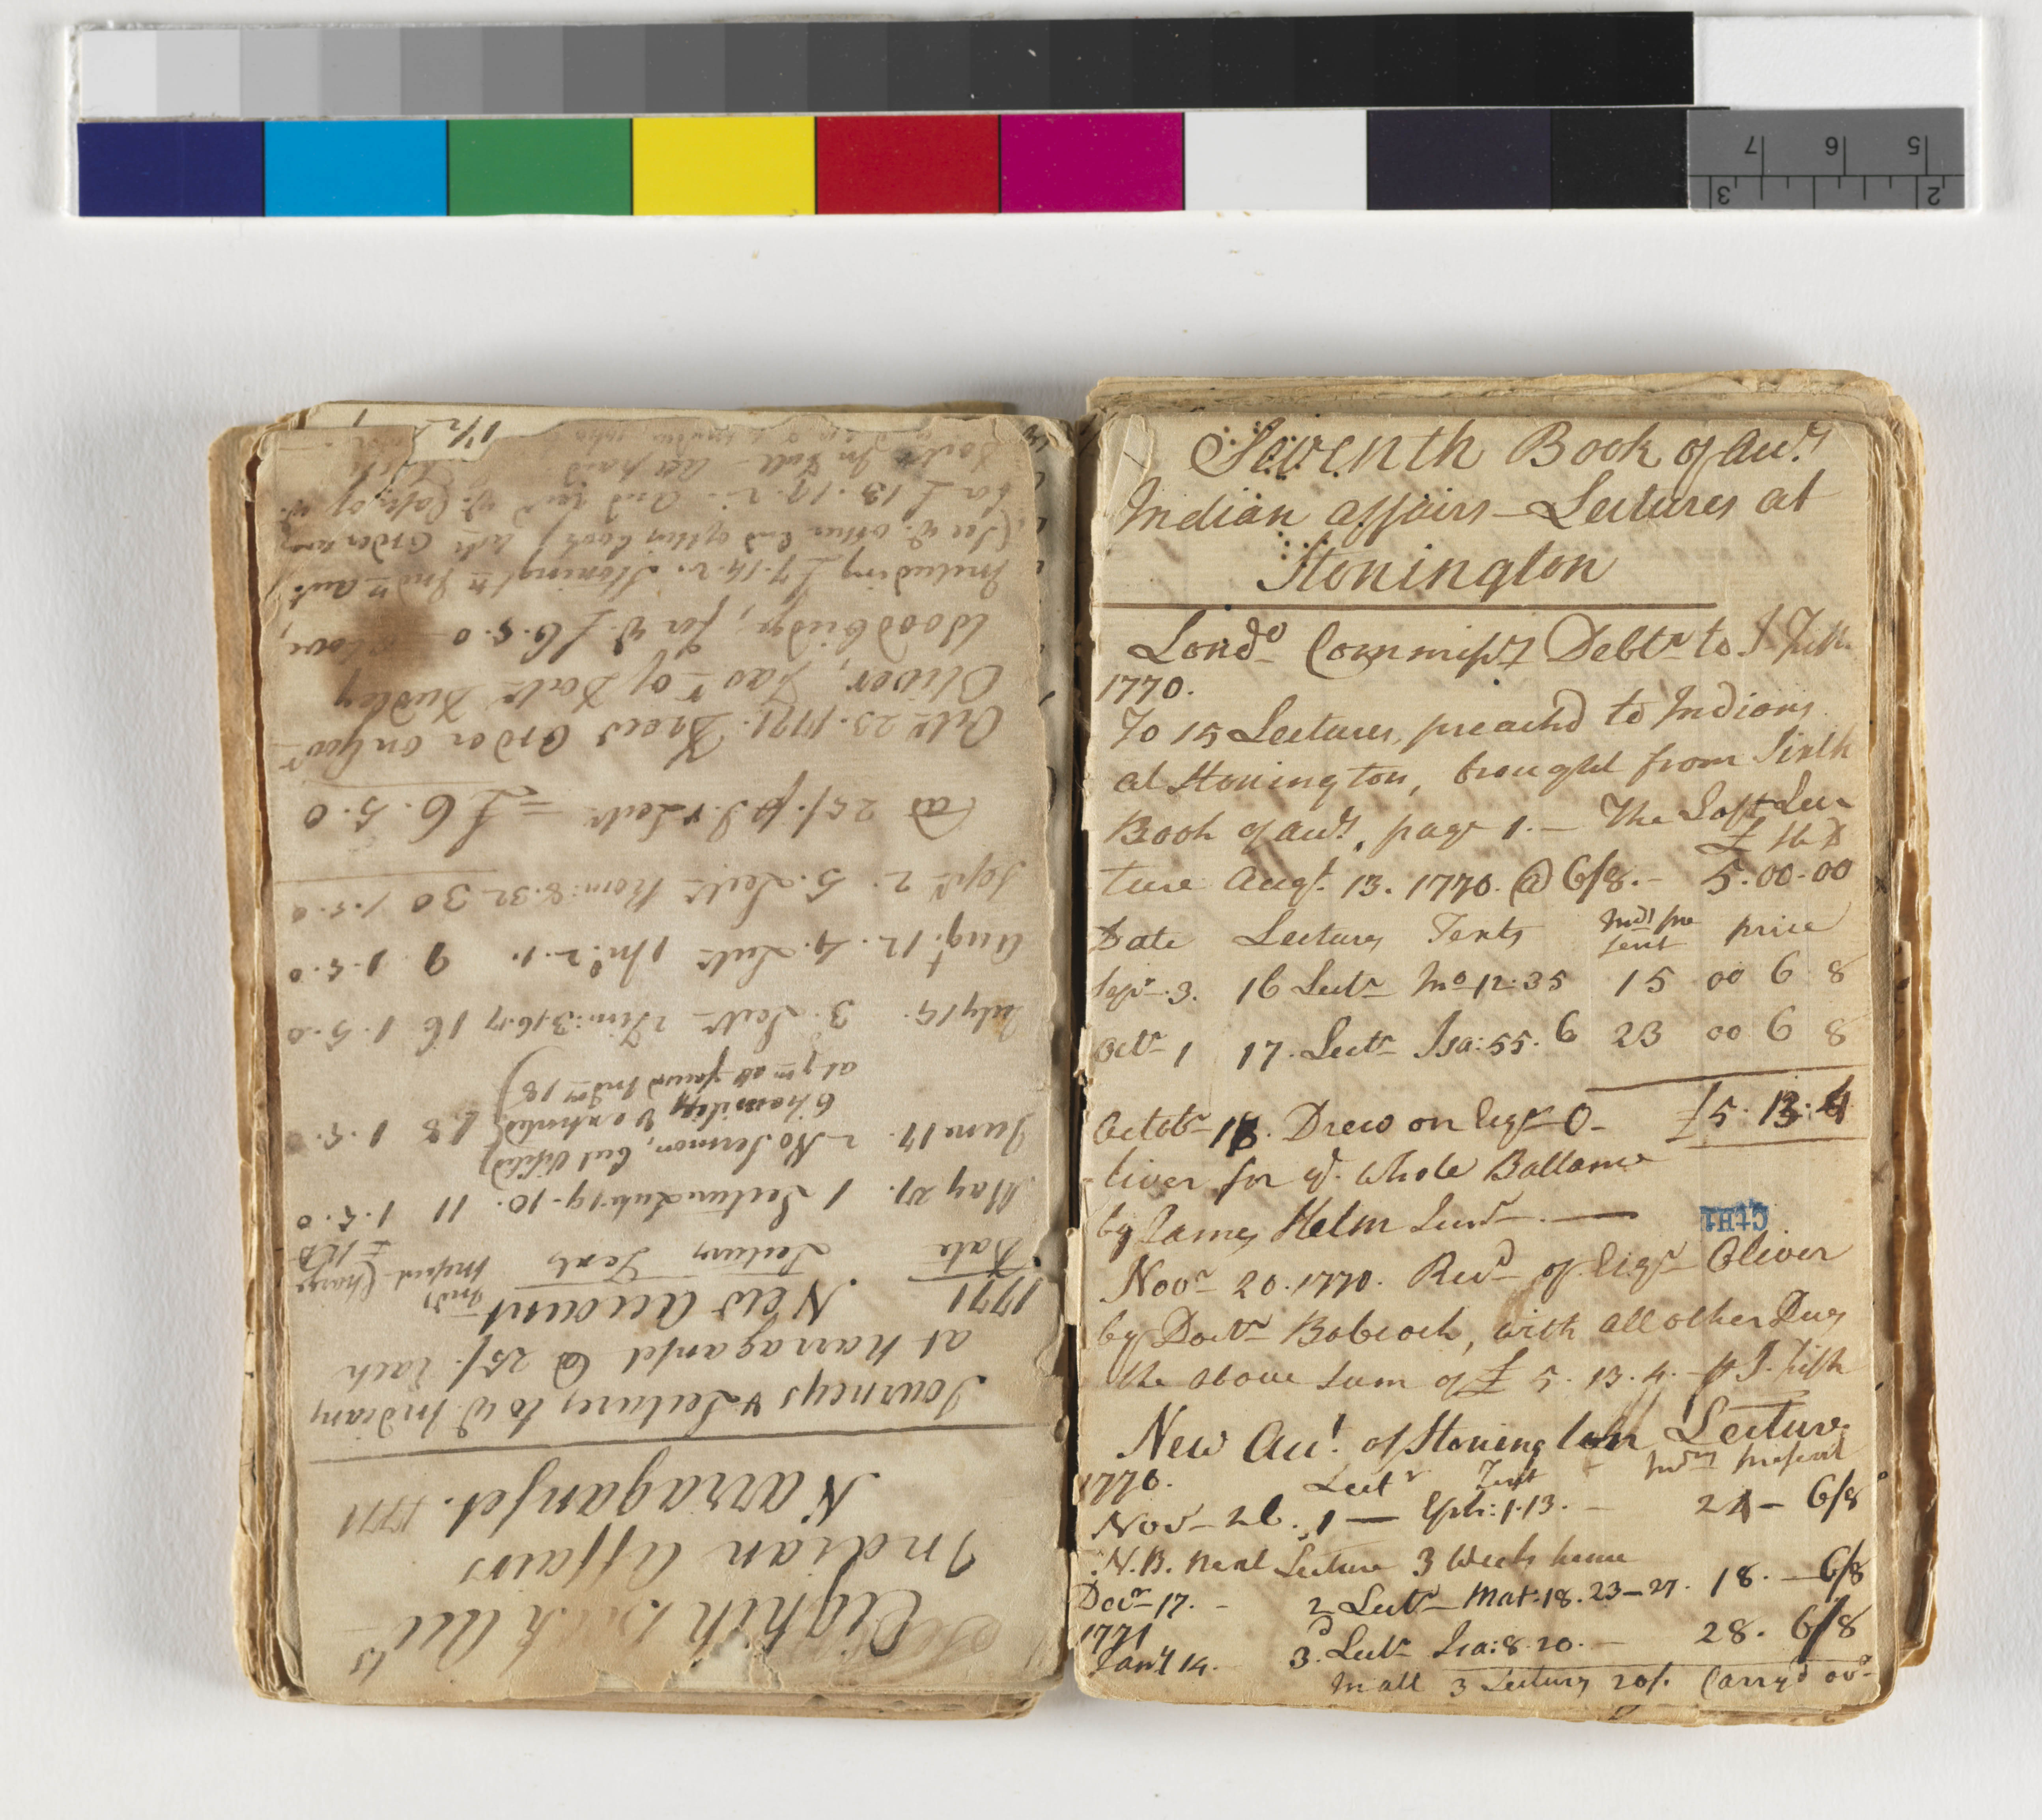 Seventh Book of Accts
Indian affairs - Lectures at
Stonington
Londo Commissrs Debtr to J Fish
1770.
To 15 Lectures, preachd to Indians
at Stonington, brought from Sixth
Book of Accts, page 1. — The Last Lec
£ sh d
ture Augt. 13. 1770. @ 6/8. - 5.00.00
Date Lectures Texts Inds pre price
sent
Sepr 3. 16 Lectr 12:35 15 00 6 8
Octr 1 17. Lectr Isa:55. 6 23 00 6 8
Octobr 18. Drew on Esqr O- £5.13.4
liver for ye. whole Ballance
by James Helm —
Novr 20. 1770. Recd of Esqr Oliver
by Doctr Babcock, with all other Dues
the above Sum of £ 5. 13. 4. - pr J. Fish
New Acct. of Stonington Lectures
1770. Lectr Text Indns present
Novr 26. 1 — Eph: 1.13. - 21 - 6/8
N.B. next Lecture 3 Weeks hence
Decr 17. - 2 Lectr Mat. 18. 23-27. 18. - 6/8
1771
Jany 14. 3d. Lectr Isa: 8. 20. - 28. 6/8
In all 3 Lectures 20/. Carryd ovr
Eighth Book Accts
Indian Affairs
Narraganset. 1771
Journeys & Lectures to ye Indians
at Narraganset @ 25/. Each
1771 New Account
Date Lectures Texts Inds present Charge
£ s d
May 27. 1 Lecture Luk:19.10. 11 1.5.0
June 17. 2 No Sermon, but Visited 18 1.5.0
6 families & exhorted
at ym all found Indns 18)
July 15. 3. Lectr 2 Tim:3.16.17 16 1.5.0
Augt. 12. 4. Lectr 1 Jno. 2.1. 9 1.5.0
Sepr 2. 5. Lectr Rom:8.32 30 1.5.0
@ 25/. pr Lectr = £6.5.0
Octr 23. 1771. Drew Order on Govr
Oliver, favr of Doctr Dudley
Woodbridge, for ye £6.5.0 above,
Including £7.14.2. Stoningtn Indn Acct.
(See ye. other End of this book)
for £13.19.2.
CtHi
7 6 5
3 2